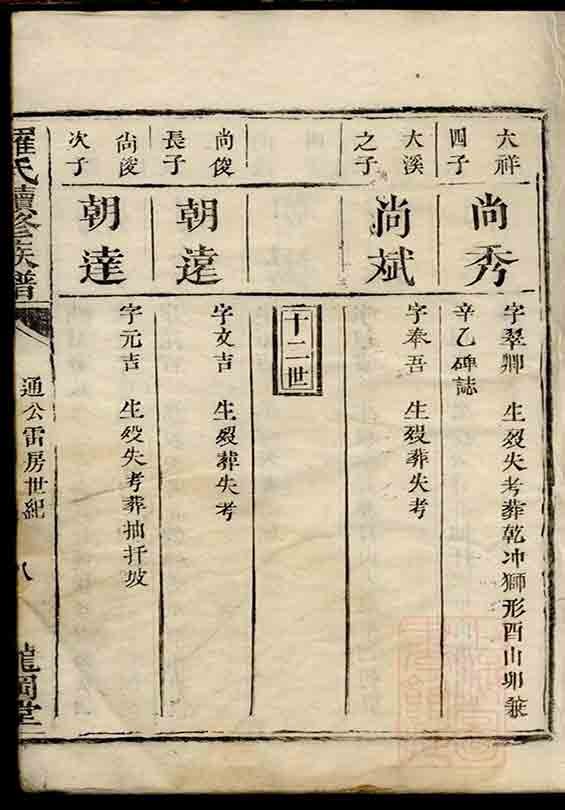 大祥
四子
尚秀
字翠卿 生歿失考葬乾冲獅形酉山卯兼
辛乙碑誌
大溪
之子
尚斌
字奉吾 生歿葬失考
十二世
尚俊
長子
朝遠
字文吉 生歿葬失考
尚俊
次子
朝達
字元吉 生歿失考葬抽扦坡
羅氏續修族譜
通公雷房世紀
八
龍岡堂